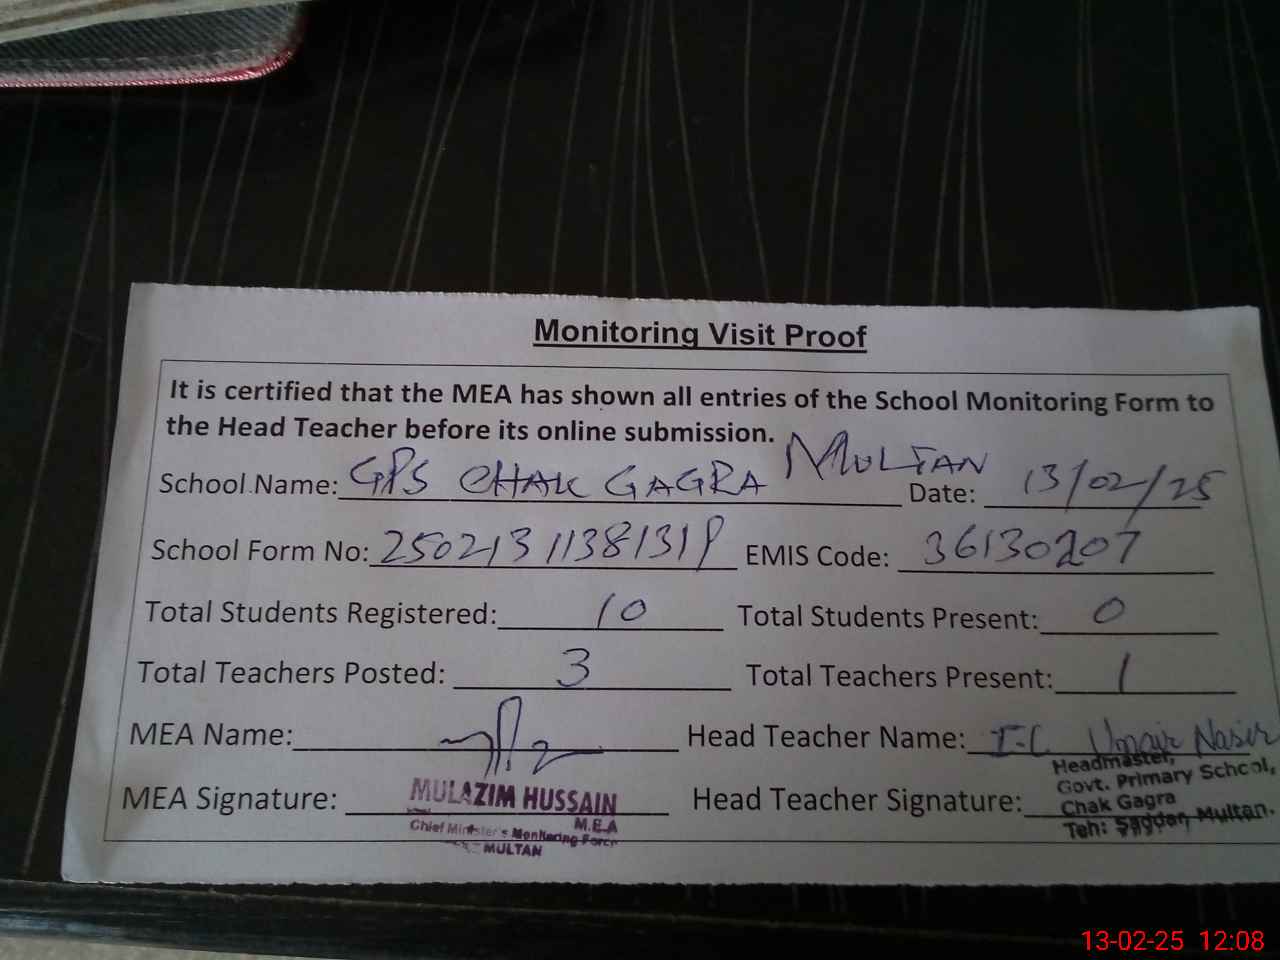 Monitoring Visit Proof
It is certified that the MEA has shown all entries of the School Monitoring Form to
the Head Teacher before its online submission.
School Name: GPS CHAK GAGRA MULTAN Date: 13/02/25
School Form No: 25021311381319 EMIS Code: 36130207
Total Students Registered: 10 Total Students Present: 0
Total Teachers Posted: 3 Total Teachers Present: 1
MEA Name: Head Teacher Name: I-C Umair Nasir
MEA Signature: Head Teacher Signature:
MULAZIM HUSSAIN
M.E.A
Chief Minister's Monitoring Force
MULTAN
Headmaster,
Govt. Primary School,
Chak Gagra
Teh: Saddar, Multan.
13-02-25 12:08